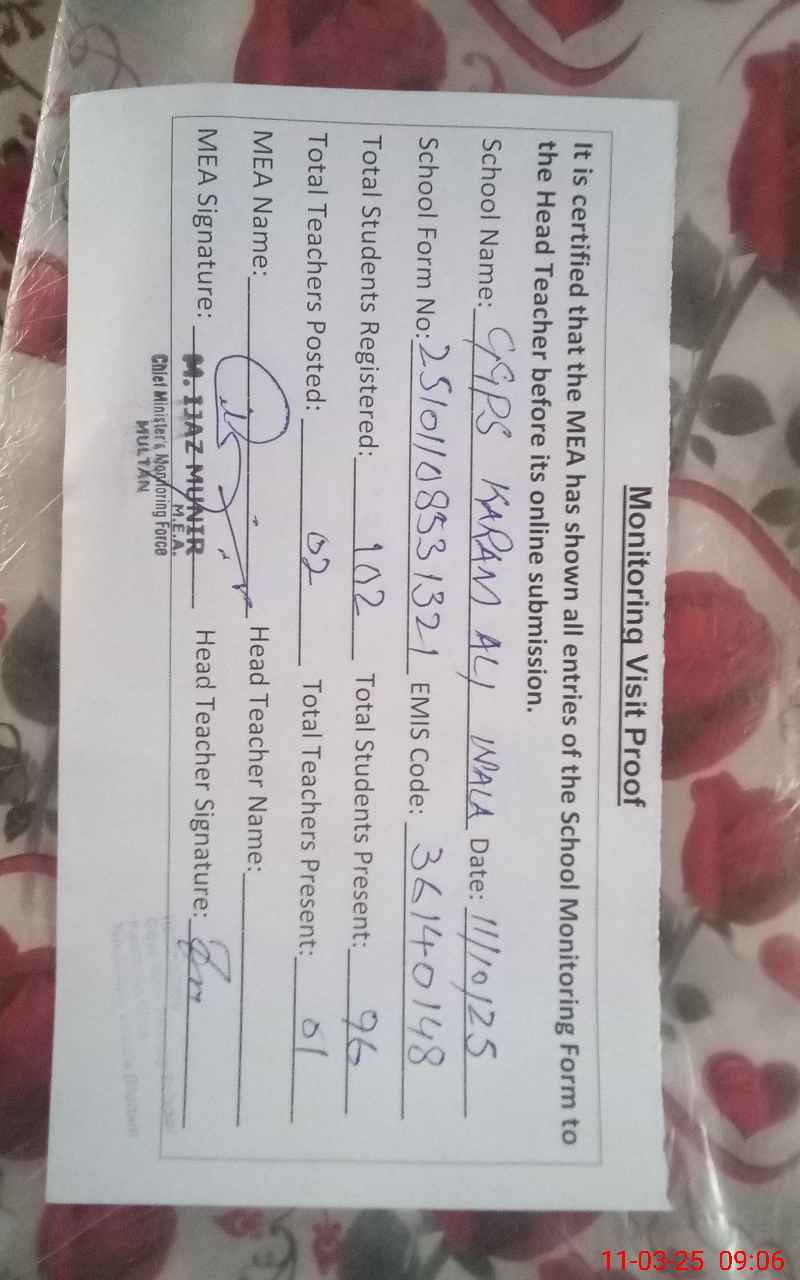 Monitoring Visit Proof
It is certified that the MEA has shown all entries of the School Monitoring Form to
the Head Teacher before its online submission.
School Name: GGPS KARAM ALI WALA Date: 11/10/25
School Form No: 25101108531321 EMIS Code: 36140148
Total Students Registered: 102 Total Students Present: 96
Total Teachers Posted: 02 Total Teachers Present: 01
MEA Name: Head Teacher Name:
MEA Signature: Head Teacher Signature:
M. IJAZ MUNIR
M.E.A.
Chief Minister's Monitoring Force
MULTAN
11-03-25 09:06